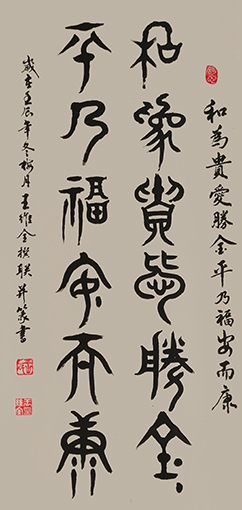 和為貴愛勝金平乃福安而康
和為貴愛勝金
平乃福安而康
歲在壬辰年冬梅月王維金撰联并篆書